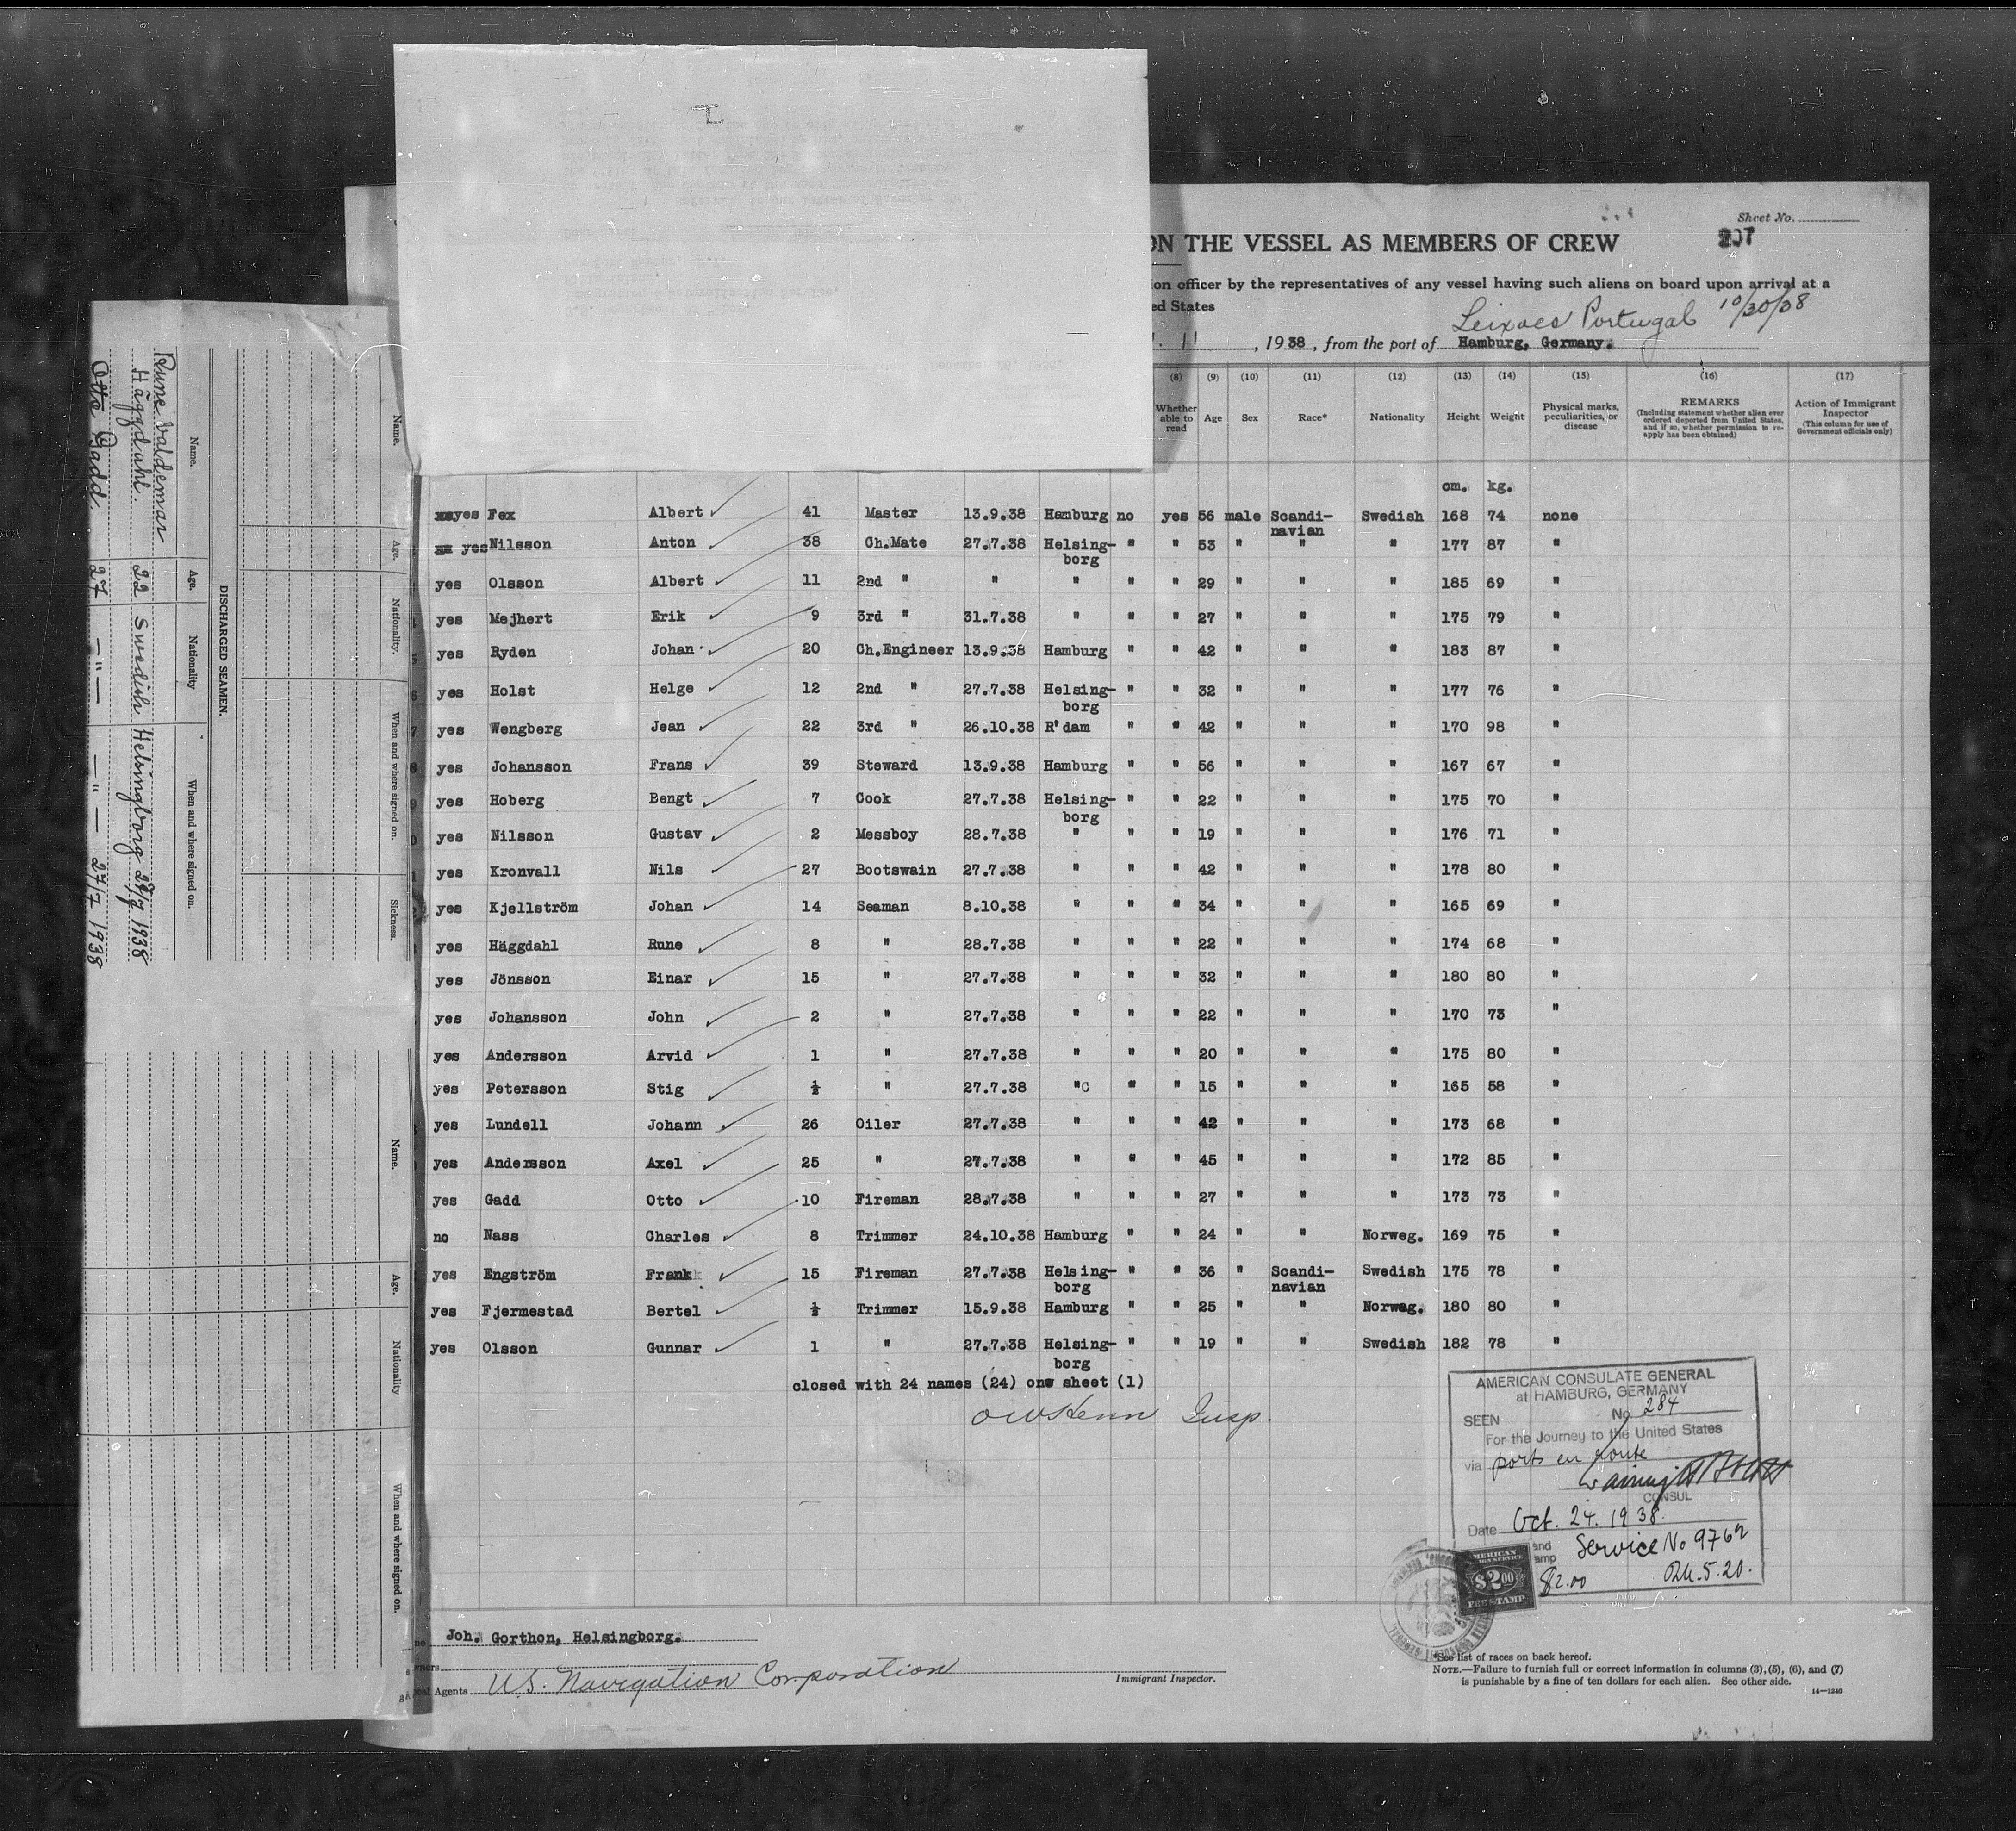 Sheet No.
207
ON THE VESSEL AS MEMBERS OF CREW
ion officer by the representatives of any vessel having such aliens on board upon arrival at a
ed States
Leixoes Portugal 10/30/38
11, 1938, from the port of Hamburg, Germany.
(8) (9) (10) (11) (12) (13) (14) (15) (16) (17)
Whether able to read Age Sex Race* Nationality Height Weight Physical marks, peculiarities, or disease REMARKS (Including statement whether alien ever ordered deported from United States, and if so, whether permission to re-apply has been obtained) Action of Immigrant Inspector (This column for use of Government officials only)
cm. kg.
yes Fex Albert 41 Master 13.9.38 Hamburg no yes 56 male Scandi-navian Swedish 168 74 none
yes Nilsson Anton 38 Ch.Mate 27.7.38 Helsing-borg " " 53 " " " 177 87 "
yes Olsson Albert 11 2nd " " " " " 29 " " " 185 69 "
yes Mejhert Erik 9 3rd " 31.7.38 " " " 27 " " " 175 79 "
yes Ryden Johan 20 Ch.Engineer 13.9.38 Hamburg " " 42 " " " 183 87 "
yes Holst Helge 12 2nd " 27.7.38 Helsing-borg " " 32 " " " 177 76 "
yes Wengberg Jean 22 3rd " 26.10.38 R'dam " " 42 " " " 170 98 "
yes Johansson Frans 39 Steward 13.9.38 Hamburg " " 56 " " " 167 67 "
yes Hoberg Bengt 7 Cook 27.7.38 Helsing-borg " " 22 " " " 175 70 "
yes Nilsson Gustav 2 Messboy 28.7.38 " " " 19 " " " 176 71 "
yes Kronvall Nils 27 Bootswain 27.7.38 " " " 42 " " " 178 80 "
yes Kjellström Johan 14 Seaman 8.10.38 " " " 34 " " " 165 69 "
yes Häggdahl Rune 8 " 28.7.38 " " " 22 " " " 174 68 "
yes Jönsson Einar 15 " 27.7.38 " " " 32 " " " 180 80 "
yes Johansson John 2 " 27.7.38 " " " 22 " " " 170 73 "
yes Andersson Arvid 1 " 27.7.38 " " " 20 " " " 175 80 "
yes Petersson Stig ½ " 27.7.38 "C " " 15 " " " 165 58 "
yes Lundell Johann 26 Oiler 27.7.38 " " " 42 " " " 173 68 "
yes Andersson Axel 25 " 27.7.38 " " " 45 " " " 172 85 "
yes Gadd Otto 10 Fireman 28.7.38 " " " 27 " " " 173 73 "
no Nass Charles 8 Trimmer 24.10.38 Hamburg " " 24 " " Norweg. 169 75 "
yes Engström Frank 15 Fireman 27.7.38 Helsing-borg " " 36 " Scandi-navian Swedish 175 78 "
yes Fjermestad Bertel ½ Trimmer 15.9.38 Hamburg " " 25 " " Norweg. 180 80 "
yes Olsson Gunnar 1 " 27.7.38 Helsing-borg " " 19 " " Swedish 182 78 "
closed with 24 names (24) one sheet (1)
Insp.
AMERICAN CONSULATE GENERAL
at HAMBURG, GERMANY
SEEN No 284
For the Journey to the United States
via ports en route
CONSUL
Date Oct. 24. 1938.
Service No 9762
$2.00 RM.5.20.
AMERICAN
$2.00
FEE STAMP
Joh. Gorthon, Helsingborg.
Agents U.S. Navigation Corporation
Immigrant Inspector.
*See list of races on back hereof.
NOTE.—Failure to furnish full or correct information in columns (3), (5), (6), and (7)
is punishable by a fine of ten dollars for each alien. See other side.
14—1240
Name. Age. Nationality. When and where signed on. Sickness.
DISCHARGED SEAMEN.
Name. Age. Nationality When and where signed on.
Rune Valdemar
Häggdahl. 22 Swedish Helsingborg 28/7 1938
Otto Gadd. 27 — " — — " — 27/7 1938
Name. Age. Nationality When and where signed on.